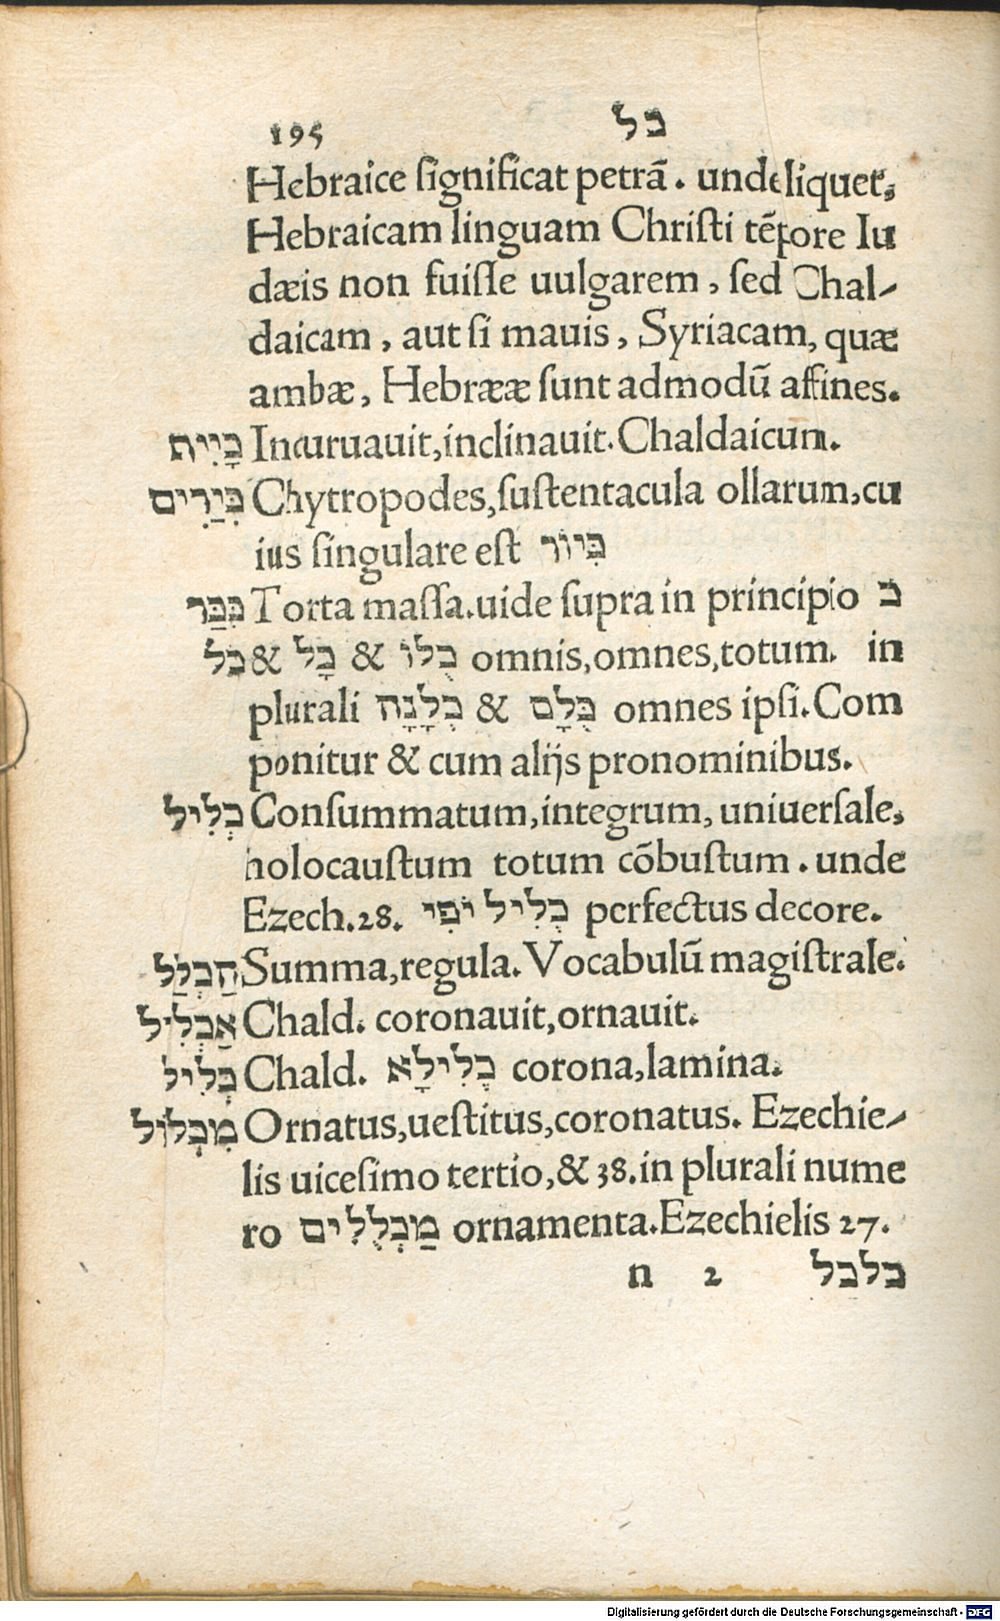 195 כל
Hebraice ſignificat petrã. unde liquet,
Hebraicam linguam Chriſti tẽpore Iu
dæis non fuiſſe uulgarem, ſed Chal-
daicam, aut ſi mauis, Syriacam, quæ
ambæ, Hebrææ ſunt admodũ affines.
כָּיִית Incuruauit, inclinauit. Chaldaicum.
כִּיַרִים Chytropodes, ſuſtentacula ollarum, cu
ius ſingulare eſt כִּיּוֹר
כִּכַּר Torta maſſa. uide ſupra in principio כ
כֹל & כָּל & כֻּלּוֹ omnis, omnes, totum. in
plurali כֻּלָּם & כֻלָּנָה omnes ipſi. Com
ponitur & cum alijs pronominibus.
כְּלִיל Conſummatum, integrum, uniuerſale,
holocauſtum totum cõbuſtum. unde
Ezech. 28. כְלִיל יֹפִי perfectus decore.
הַכְלַל Summa, regula. Vocabulũ magiſtrale.
אַכְלִיל Chald. coronauit, ornauit.
כְּלִיל Chald. כְּלִילָא corona, lamina.
מִכְלוֹל Ornatus, ueſtitus, coronatus. Ezechie-
lis uiceſimo tertio, & 38. in plurali nume
ro מַכְלֻלִים ornamenta. Ezechielis 27.
n 2 כלכל
Digitalisierung gefördert durch die Deutsche Forschungsgemeinschaft - DFG